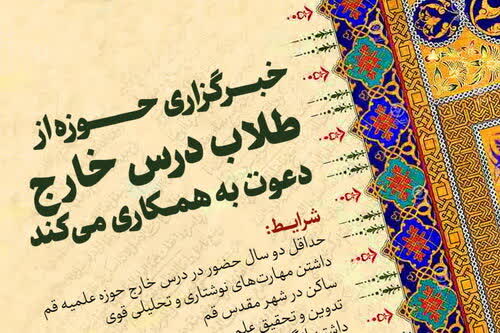 خبرگزاری حوزه از
طلاب درس خارج
دعوت به همکاری می‌کند
شرایط:
حداقل دو سال حضور در درس خارج حوزه علمیه قم
داشتن مهارت‌های نوشتاری و تحلیلی قوی
ساکن در شهر مقدس قم
تدوین و تحقیق علمی
داشتن